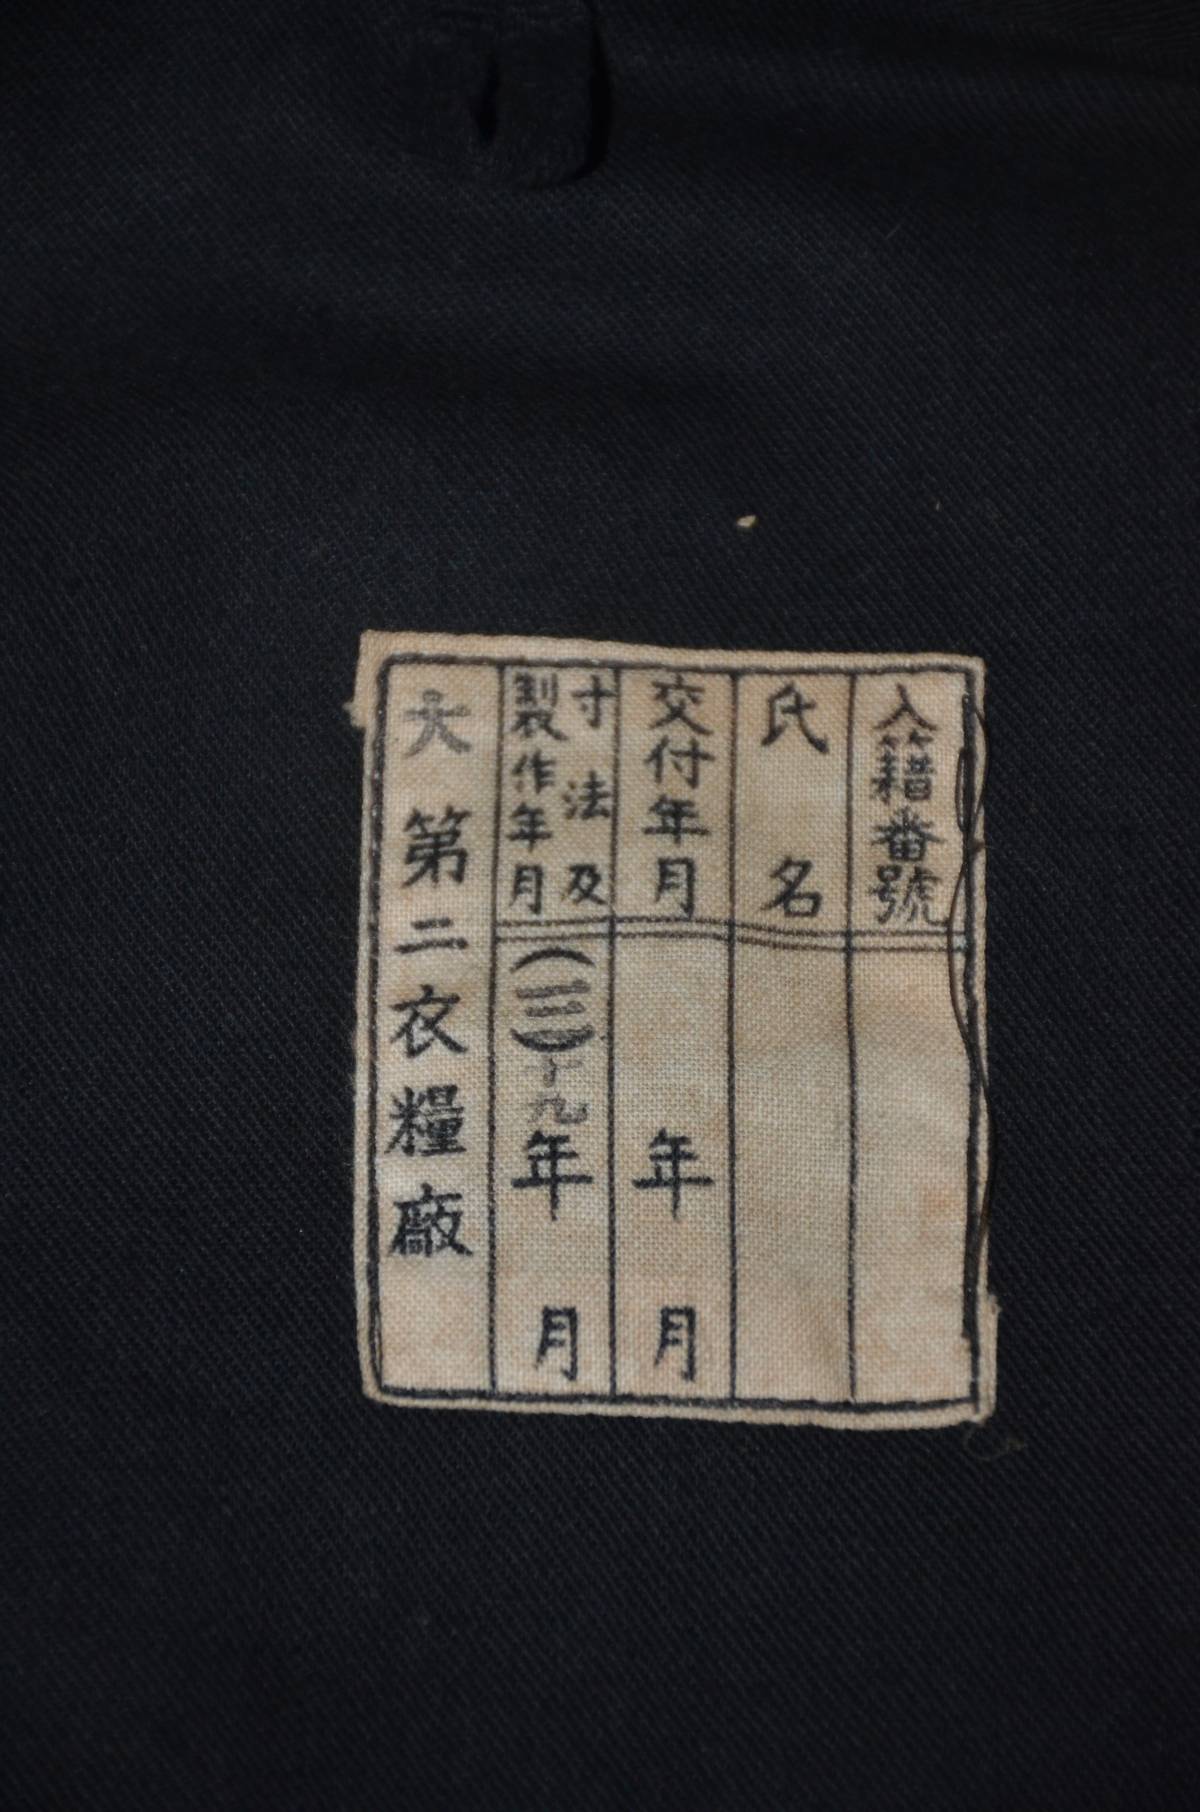 入籍番號
氏名
交付年月
年 月
寸法及
製作年月
(二三)十九年 月
第二衣糧廠